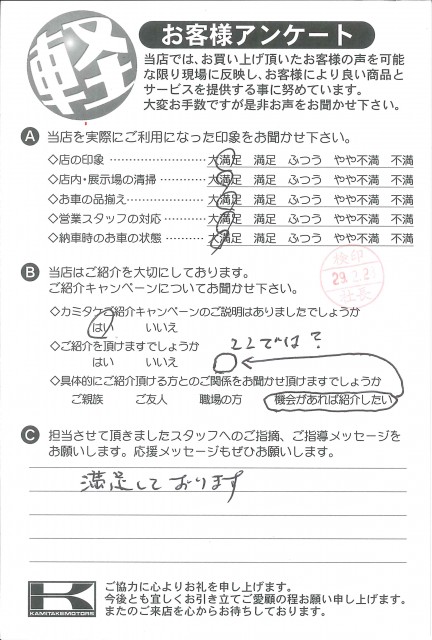 軽
お客様アンケート
当店では、お買い上げ頂いたお客様の声を可能
な限り現場に反映し、お客様により良い商品と
サービスを提供する事に努めています。
大変お手数ですが是非お声をお聞かせ下さい。
A 当店を実際にご利用になった印象をお聞かせ下さい。
◇店の印象 ………………… 大満足 満足 ふつう やや不満 不満
◇店内・展示場の清掃 ………… 大満足 満足 ふつう やや不満 不満
◇お車の品揃え ……………… 大満足 満足 ふつう やや不満 不満
◇営業スタッフの対応 ………… 大満足 満足 ふつう やや不満 不満
◇納車時のお車の状態 ………… 大満足 満足 ふつう やや不満 不満
検印
29.2.2
社長
B 当店はご紹介を大切にしております。
ご紹介キャンペーンについてお聞かせ下さい。
◇カミタケご紹介キャンペーンのご説明はありましたでしょうか
はい いいえ
ココでは?
◇ご紹介を頂けますでしょうか
はい いいえ
◇具体的にご紹介頂ける方とのご関係をお聞かせ頂けますでしょうか
ご親族 ご友人 職場の方 機会があれば紹介したい
C 担当させて頂きましたスタッフへのご指摘、ご指導メッセージを
お願いします。応援メッセージもぜひお願いします。
満足しております
K
KAMITAKEMOTORS
ご協力に心よりお礼を申し上げます。
今後とも宜しくお引き立てご愛顧の程お願い申し上げます。
またのご来店を心からお待ちしております。